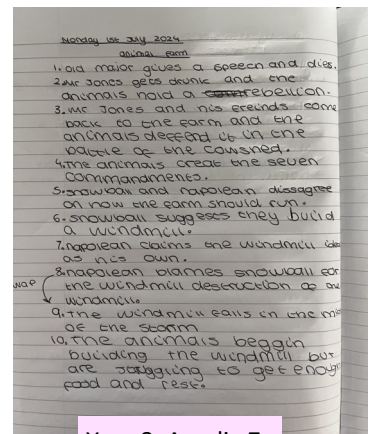 Monday 1st July 2024
animal farm
1. old major gives a speech and dies.
2. mr Jones gets drunk and the
animals hold a rebellion.
3. mr Jones and his freinds come
back to the farm and the
animals deffend it in the
battle of the cowshed.
4. The animals creat the seven
commandments.
5. snowball and napolean dissagree
on how the farm should run.
6. snowball suggests they build
a windmill.
7. napolean claims the windmill idea
as his own.
8. napolean blames snowball for
the windmill destruction of the
windmill.
9. the windmill falls in the
of the storm
10. The animals beggin
building the windmill but
are to get enough
food and rest.